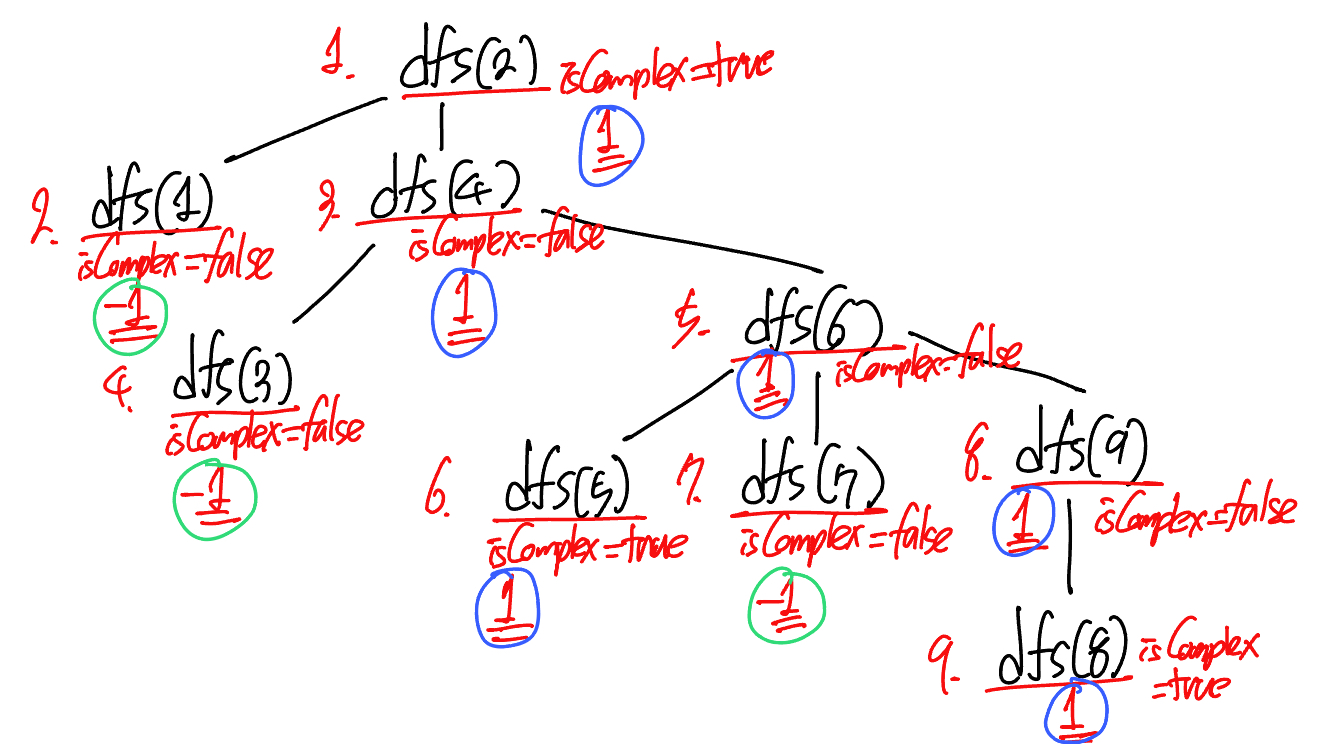 1. dfs(2) isComplex=true
1
2. dfs(1)
isComplex=false
-1
3. dfs(4)
isComplex=false
1
4. dfs(3)
isComplex=false
-1
5. dfs(6)
isComplex=false
1
6. dfs(5)
isComplex=true
1
7. dfs(7)
isComplex=false
-1
8. dfs(9)
isComplex=false
1
9. dfs(8) isComplex
=true
1